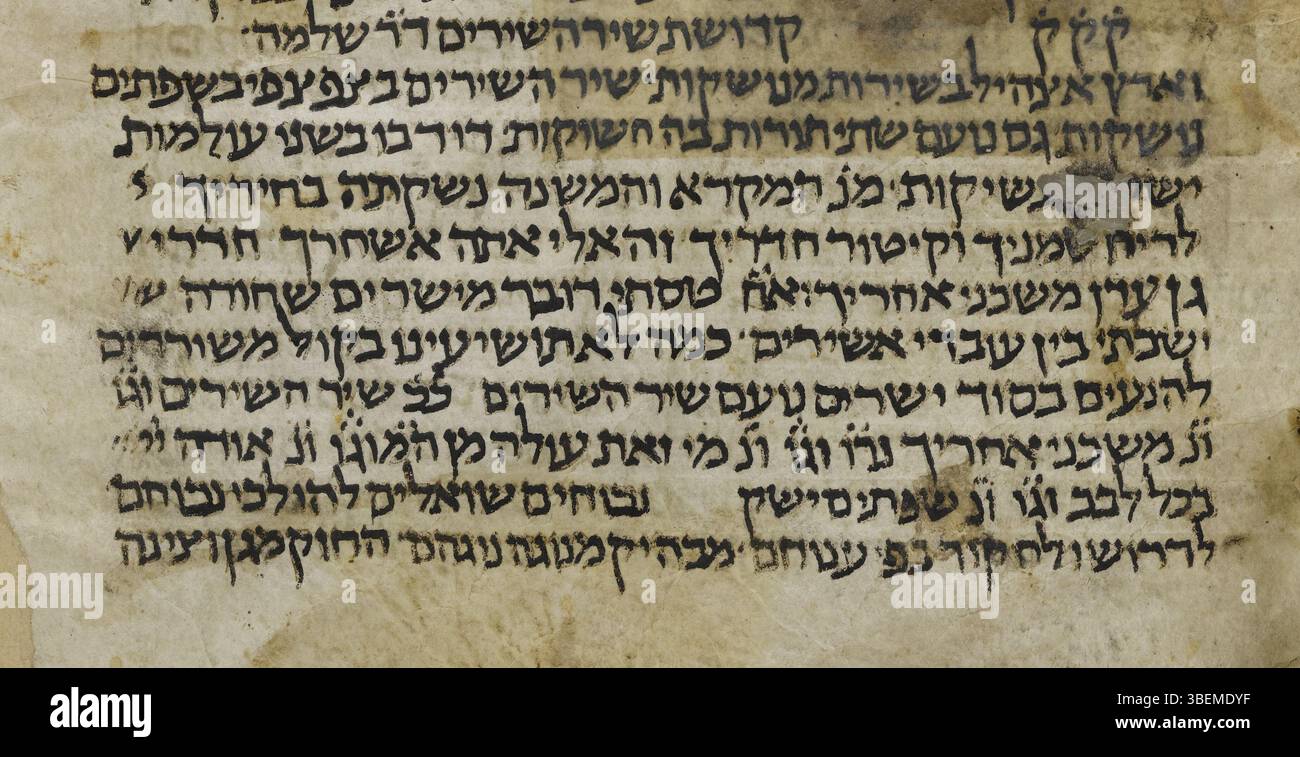 ק̇ ק̇ ק̇ קדושת שיר השירים דר̇ שלמה
וארץ אצהיל בשירות מנשקות שיר השירים בצפצפי בשפתים
נשקות גם נועם שתי תורות בה חשוקות דוד בו בשנו עולמות
נשיקות מן המקרא והמשנה נשקתה בחיריך
לריח שמניך וקיטור חדריך והאלי אתה אשחרך חדרי
גן עדן משכני אחריך ואח̇ טסתי דובר מישרים שחורה
ישבתי בין עובדי אשירים כמה לא תושיעינו בקול משוררים
להנעים בסוד ישרים נועם שיר השירים ככ̇ שיר השירים וגו̇
ונ̇ משכני אחריך נרו̇ וגו̇ ונ̇ מי זאת עולה מן המ̇ וגו̇ ונ̇ אודה
בכל לבב וגו̇ ונ̇ שבתי סישק נבוחים שואלים להולכי נבוחם
לדרוש ולחקור כפ̇ ענוחם מבהיק מנוגה נוגהם החוק מגן וצינה
alamy
Image ID: 3BEMDYF
www.alamy.com